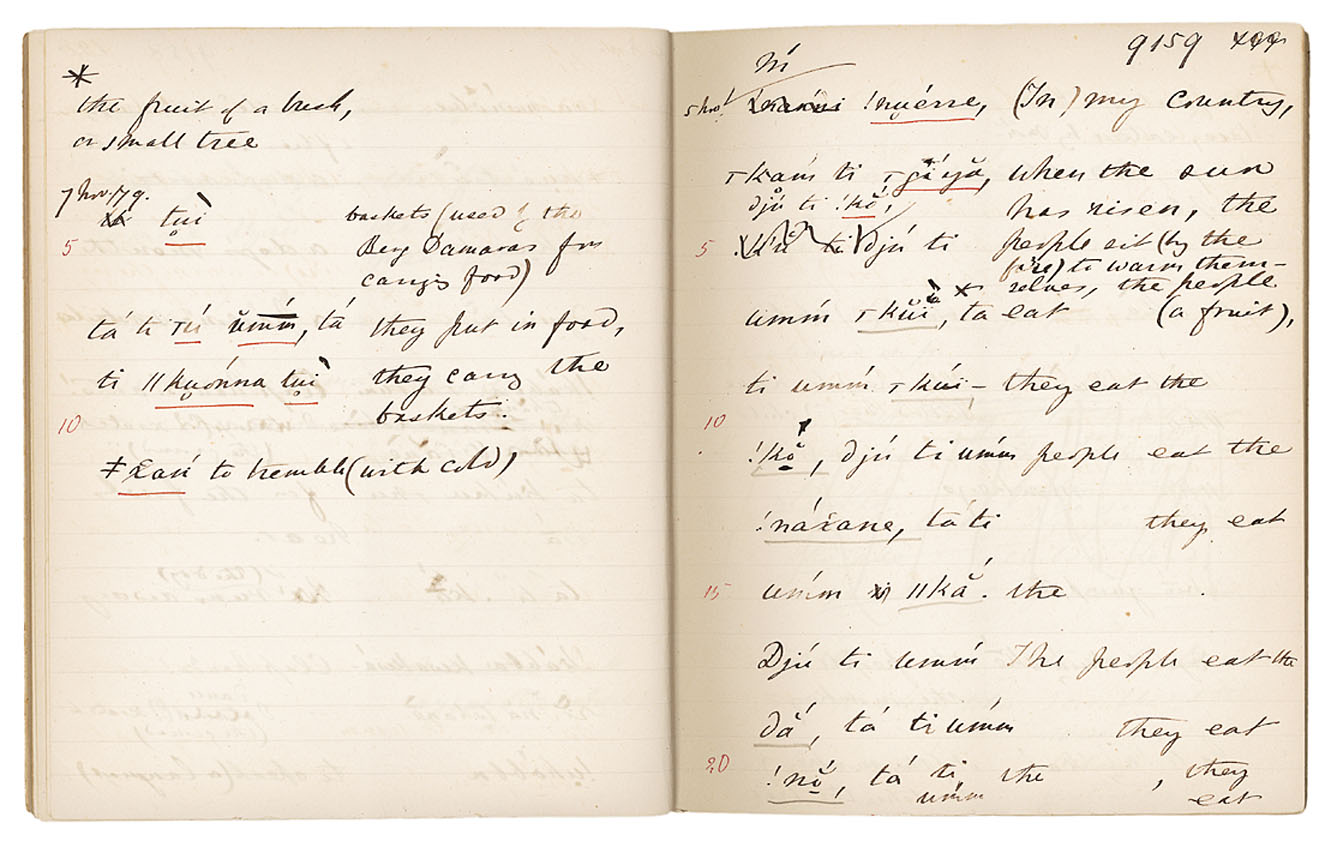 *
the fruit of a bush,
or small tree
7 Nov. 79.
tu̥ì baskets (used by the
5 Berg Damaras for
carryg food)
tá ti umḿ, tá they put in food,
ti ǁku̥ónna tu̥ì they carry the
10 baskets.
ǂx̌aú to tremble (with cold)
9159
ń́
5 Nov. !nuérre, (In) my country,
when the sun
djú ti !kŏ́, has risen, the
5 ti djú ti people sit (by the
fire) to warm them-
selves, the people
umḿ ꞁkŭí, ta eat * (a fruit),
ti umḿ ꞁkúi – they eat the
10
!kŏ̥́, djú ti umḿ people eat the
!náx̌ane, tá ti they eat
15 umḿ ǁkắ. the
Djú ti umḿ The people eat the
dắ, tá ti umḿ they eat
20 !nŏ̥́, tá ti the , they
umḿ eat